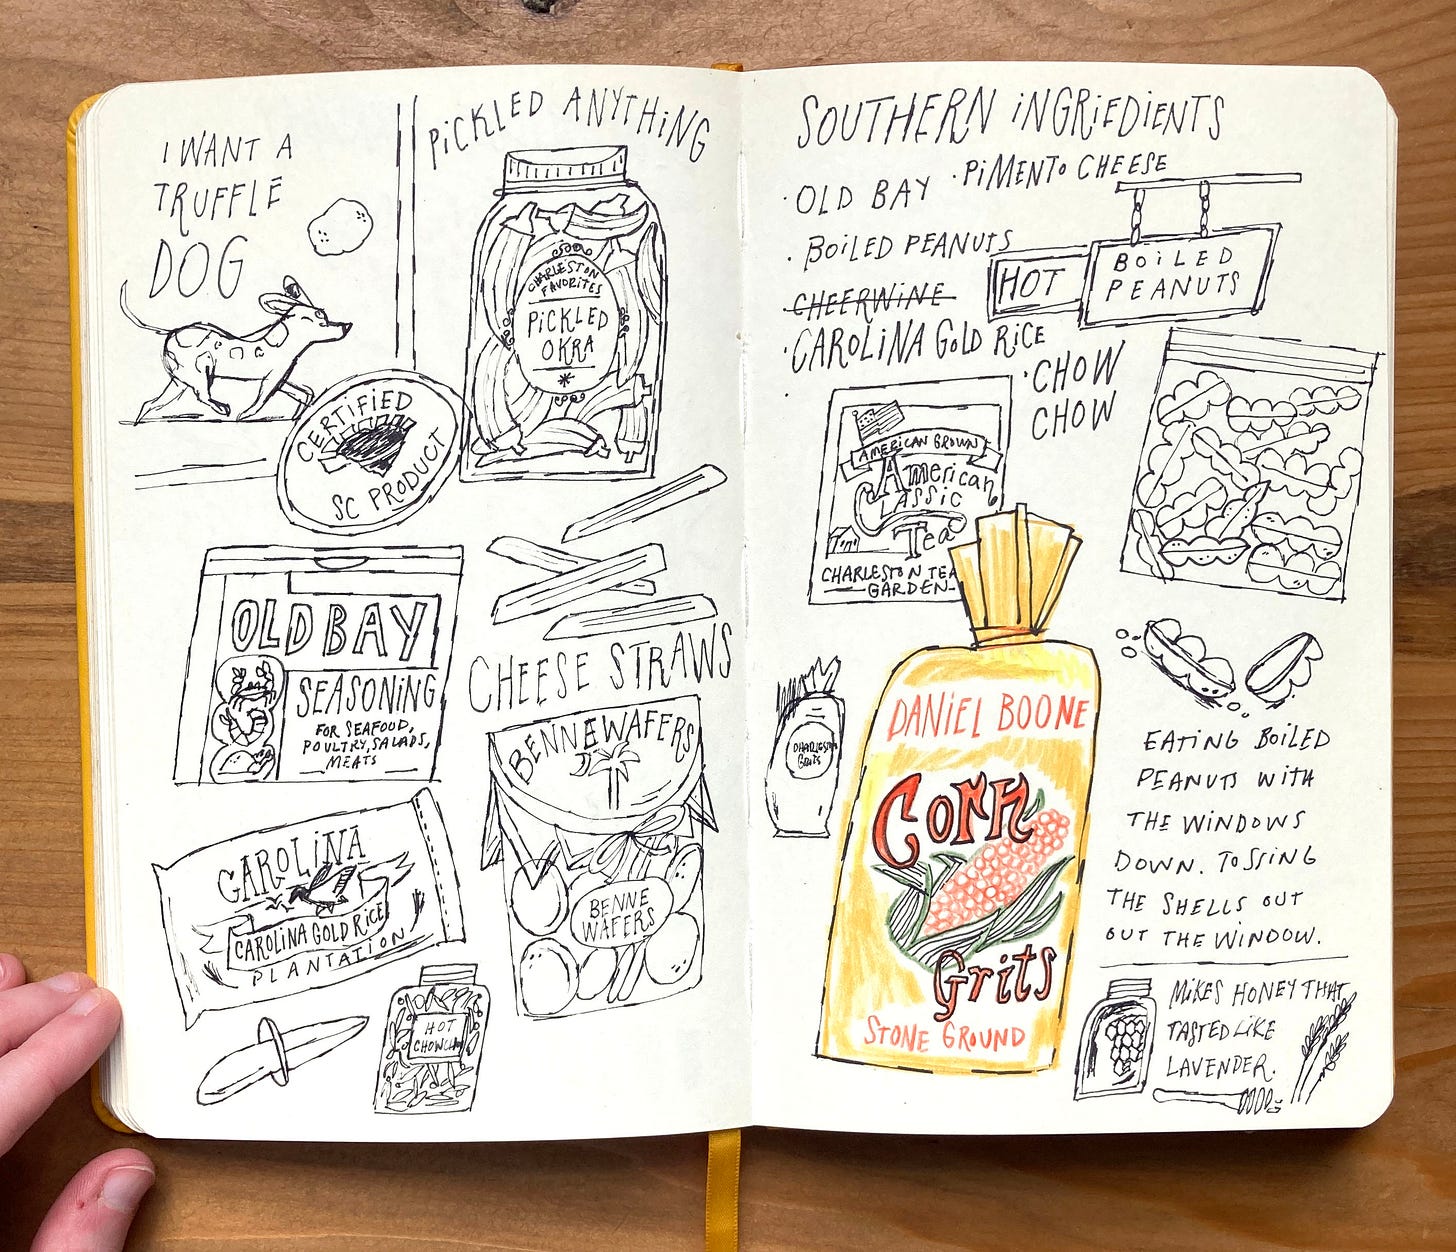 I WANT A
TRUFFLE
DOG
PICKLED ANYTHING
CHARLESTON
FAVORITES
PICKLED
OKRA
CERTIFIED
SC PRODUCT
OLD BAY
SEASONING
FOR SEAFOOD,
POULTRY, SALADS,
MEATS
CHEESE STRAWS
BENNE WAFERS
BENNE
WAFERS
CAROLINA
CAROLINA GOLD RICE
PLANTATION
HOT
SOUTHERN INGRIEDIENTS
· PIMENTO CHEESE
· OLD BAY
· BOILED PEANUTS
· CHEERWINE
· CAROLINA GOLD RICE
· CHOW
CHOW
HOT
BOILED
PEANUTS
AMERICAN GROWN
American
Classic
Tea
CHARLESTON TEA
GARDEN
CHARLESTON
Grits
DANIEL BOONE
Corn
Grits
STONE GROUND
EATING BOILED
PEANUTS WITH
THE WINDOWS
DOWN. TOSSING
THE SHELLS OUT
OUT THE WINDOW.
MIKES HONEY THAT
TASTED LIKE
LAVENDER.